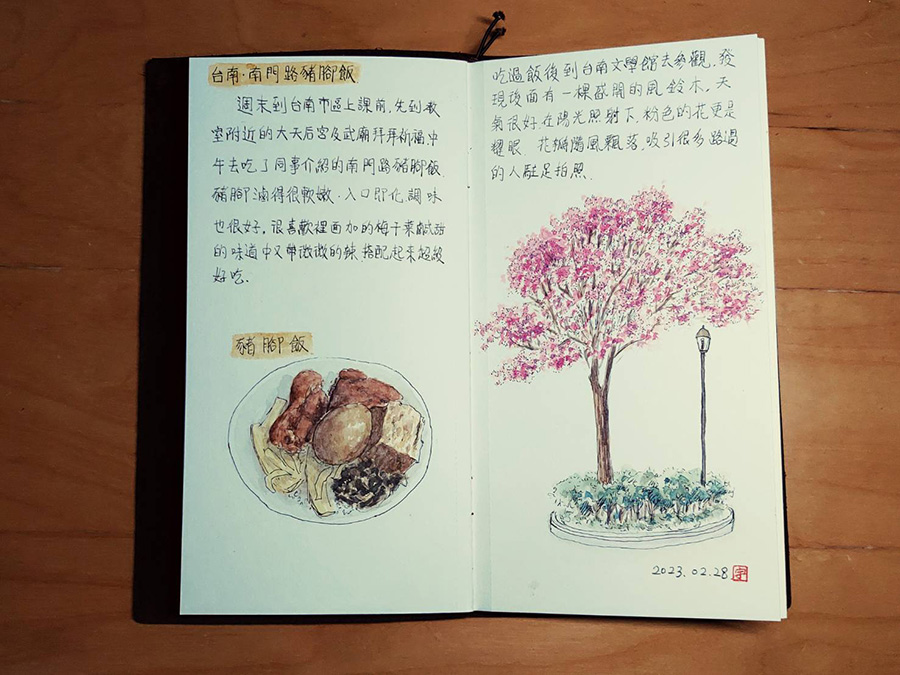 台南·南門路豬腳飯
週末到台南市區上課前,先到教
室附近的大天后宮及武廟拜拜祈福,中
午去吃了同事介紹的南門路豬腳飯
豬腳滷得很軟嫩,入口即化,調味
也很好。很喜歡裡面加的梅干菜,鹹甜
的味道中又帶微微的辣,搭配起來超級
好吃.
豬腳飯
吃過飯後到台南文學館去參觀,發
現後面有一棵盛開的風鈴木,天
氣很好,在陽光照射下,粉色的花更是
耀眼 花瓣隨風飄落,吸引很多路過
的人駐足拍照.
2023.02.28